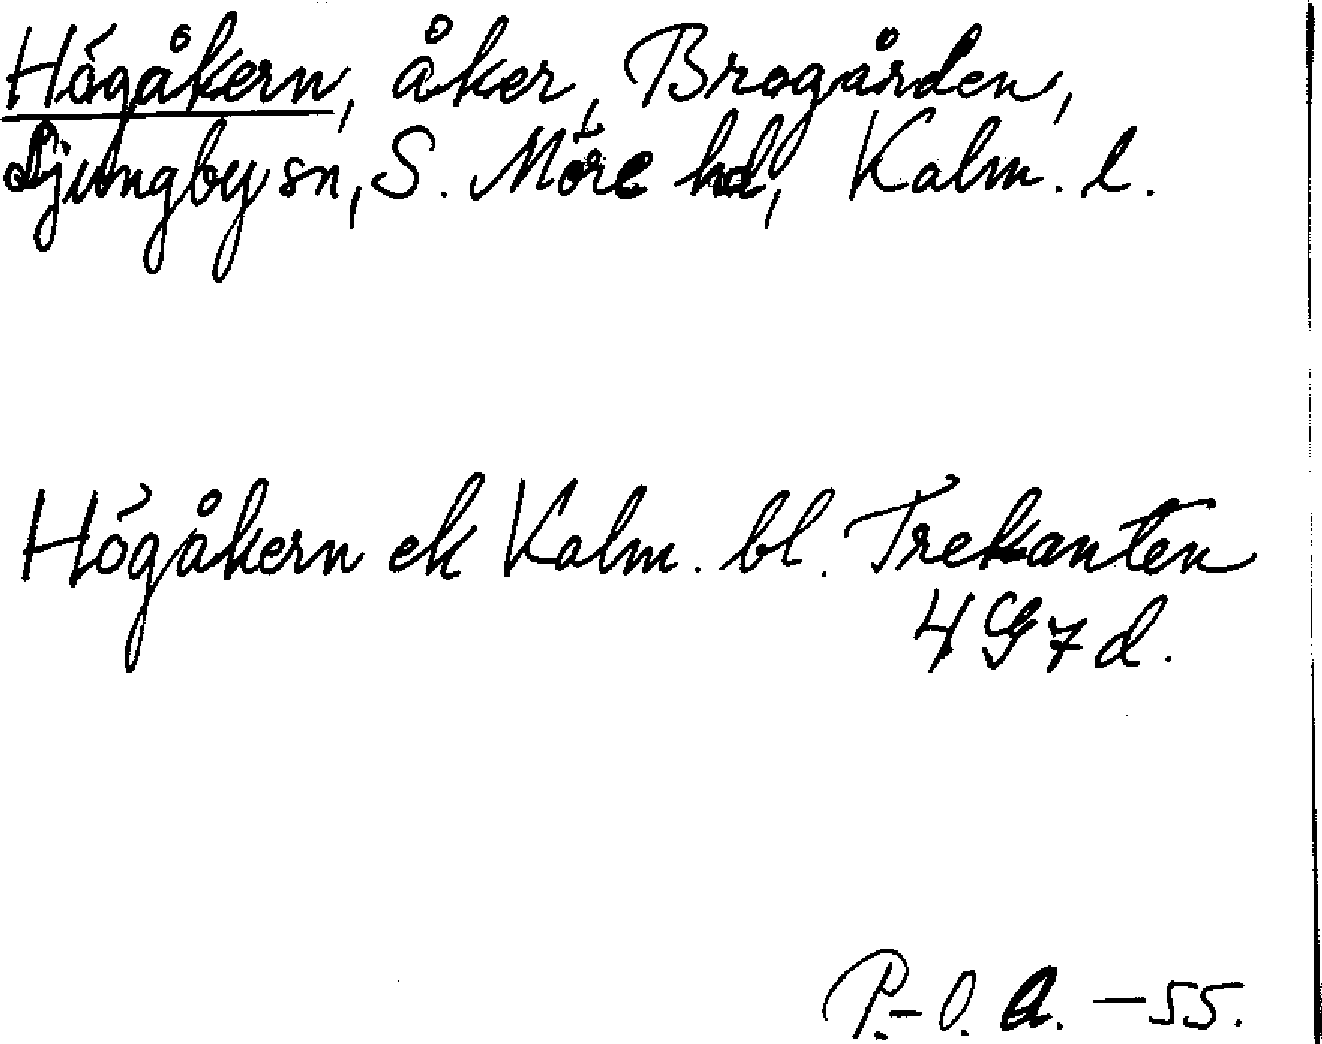 Högåkern, åker, Brogården,
Ljungby sn, S. Möre hd, Kalm. l.
Högåkern ek Kalm. bl. Trekanten
4 G 7 d.
P.-O. A. - 55.